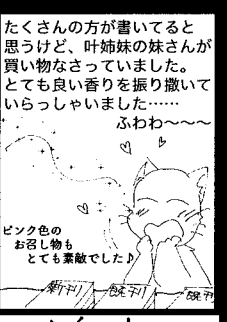 たくさんの方が書いてると
思うけど、叶姉妹の妹さんが
買い物なさっていました。
とても良い香りを振り撒いて
いらっしゃいました……
ふわわ〜〜〜
ピンク色の
お召し物も
とても素敵でした♪
新刊
既刊
既刊